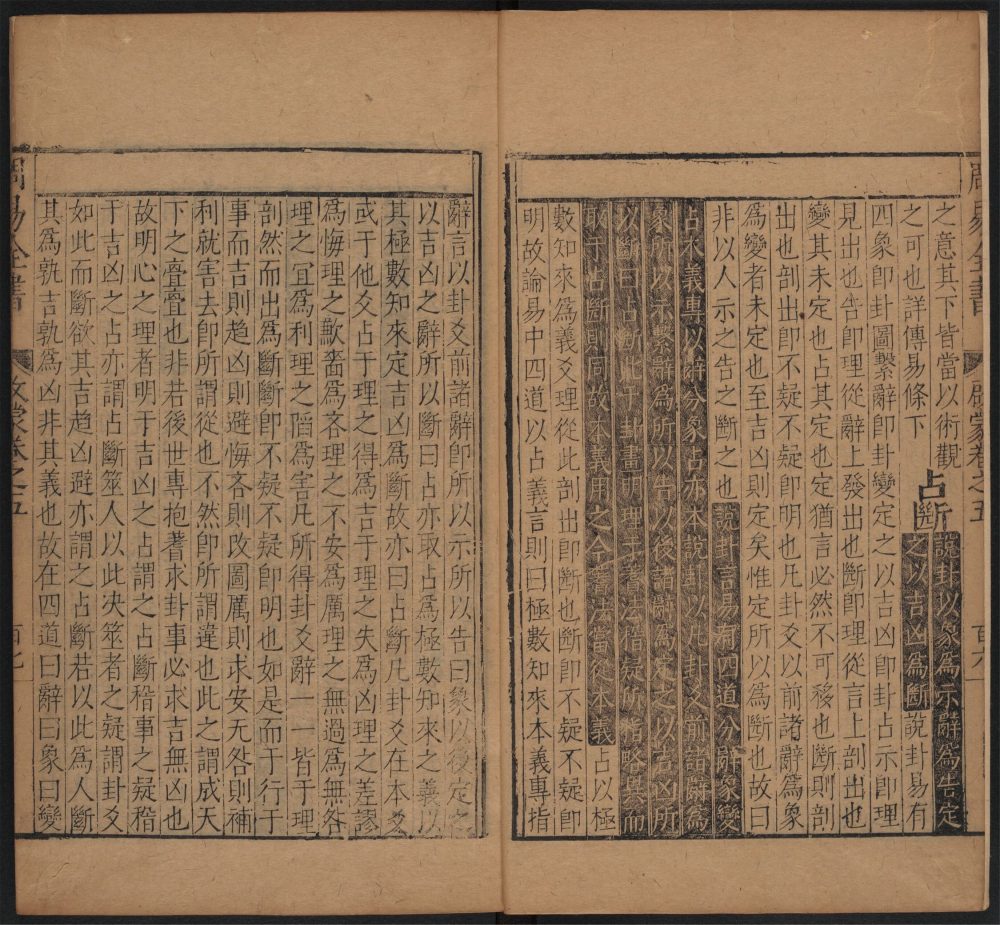 之意其下皆當以術觀
之可也詳傳易條下
占斷
說卦以象爲示辭爲告定
之以吉凶爲斷說卦易有
四象卽卦圖繫辭卽卦變定之以吉凶卽卦占示卽理
見出也告卽理從辭上發出也斷卽理從言上剖出也
變其未定也占其定也定猶言必然不可移也斷則剖
出也剖出卽不疑不疑卽明也凡卦爻以前諸辭爲象
爲變者未定也至吉凶則定矣惟定所以爲斷也故曰
非以人示之告之斷之也說卦言易有四道分辭象變
占本義專以辭分象占亦本說卦以凡卦爻前諸辭爲
象所以示繫辭爲所以告以後諸辭爲定之以吉凶所
以斷曰占斷此于卦畫明理于蓍法揩疑所指略異而
取于占斷則同故本義用之今蓍法當從本義占以極
數知來爲義爻理從此剖出卽斷也斷卽不疑不疑卽
明故論易中四道以占義言則曰極數知來本義專指
辭言以卦爻前諸辭卽所以示所以告曰象以後定之
以吉凶之辭所以斷曰占亦取占爲極數知來之義以
其極數知來定吉凶爲斷故亦曰占斷凡卦爻在本爻
或于他爻占于理之得爲吉于理之失爲凶理之差謬
爲悔理之歉嗇爲吝理之不安爲厲理之無過爲無咎
理之宜爲利理之䧟爲害凡所得卦爻辭一一皆于理
剖然而出爲斷斷卽不疑不疑卽明也如是而于行于
事而吉則趋凶則避悔吝則改圖厲則求安无咎則補
利就害去卽所謂從也不然卽所謂違也此之謂成天
下之亹亹也非若後世專抱蓍求卦事必求吉無凶也
故明心之理者明于吉凶之占謂之占斷稽事之疑稽
于吉凶之占亦謂占斷筮人以此决筮者之疑謂卦爻
如此而斷欲其吉趋凶避亦謂之占斷若以此爲人斷
其爲孰吉孰爲凶非其義也故在四道曰辭曰象曰變
周易全書
啟蒙卷之五